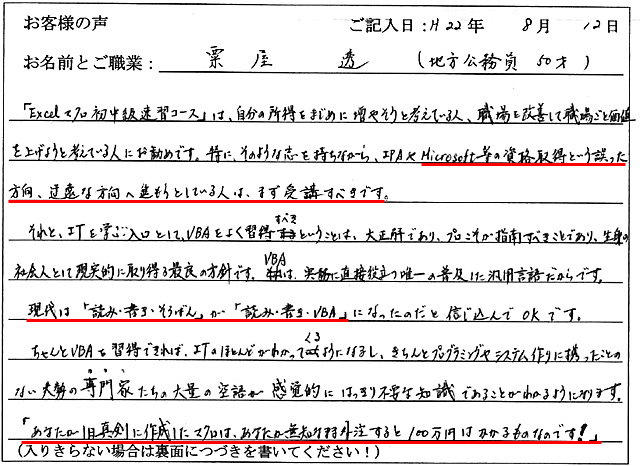 お客様の声 ご記入日:H22年 8月 12日
お名前とご職業: 粟屋 透 (地方公務員 50才)
「Excelマクロ初中級速習コース」は、自分の所得をまじめに増やそうと考えている人、職場を改善して職場ごと価値
を上げようと考えている人にお勧めです。特に、そのような志を持ちながら、IPAやMicrosoft等の資格取得という誤った
方向、迂遠な方向へ進もうとしている人は、まず受講すべきです。
それと、ITを学ぶ入口として、VBAをよく習得すべきということは、大正解であり、プロこそが指南すべきことであり、生身の
社会人として現実的に取り得る最良の方針です。VBAは、実務に直接役立つ唯一の普及した汎用言語だからです。
現代は「読み・書き・そろばん」が「読み・書き・VBA」になったのだと信じ込んでOKです。
ちゃんとVBAを習得できれば、ITのほとんどがわかってくるようになるし、きちんとプログラミングやシステム作りに携ったことの
ない大勢の専門家たちの大量の空語が感覚的にはっきり不要な知識であることがわかるようになります。
「あなたが1日真剣に作成したマクロは、あなたが無知なまま外注すると100万円はかかるものなのです!」
(入りきらない場合は裏面につづきを書いてください!)